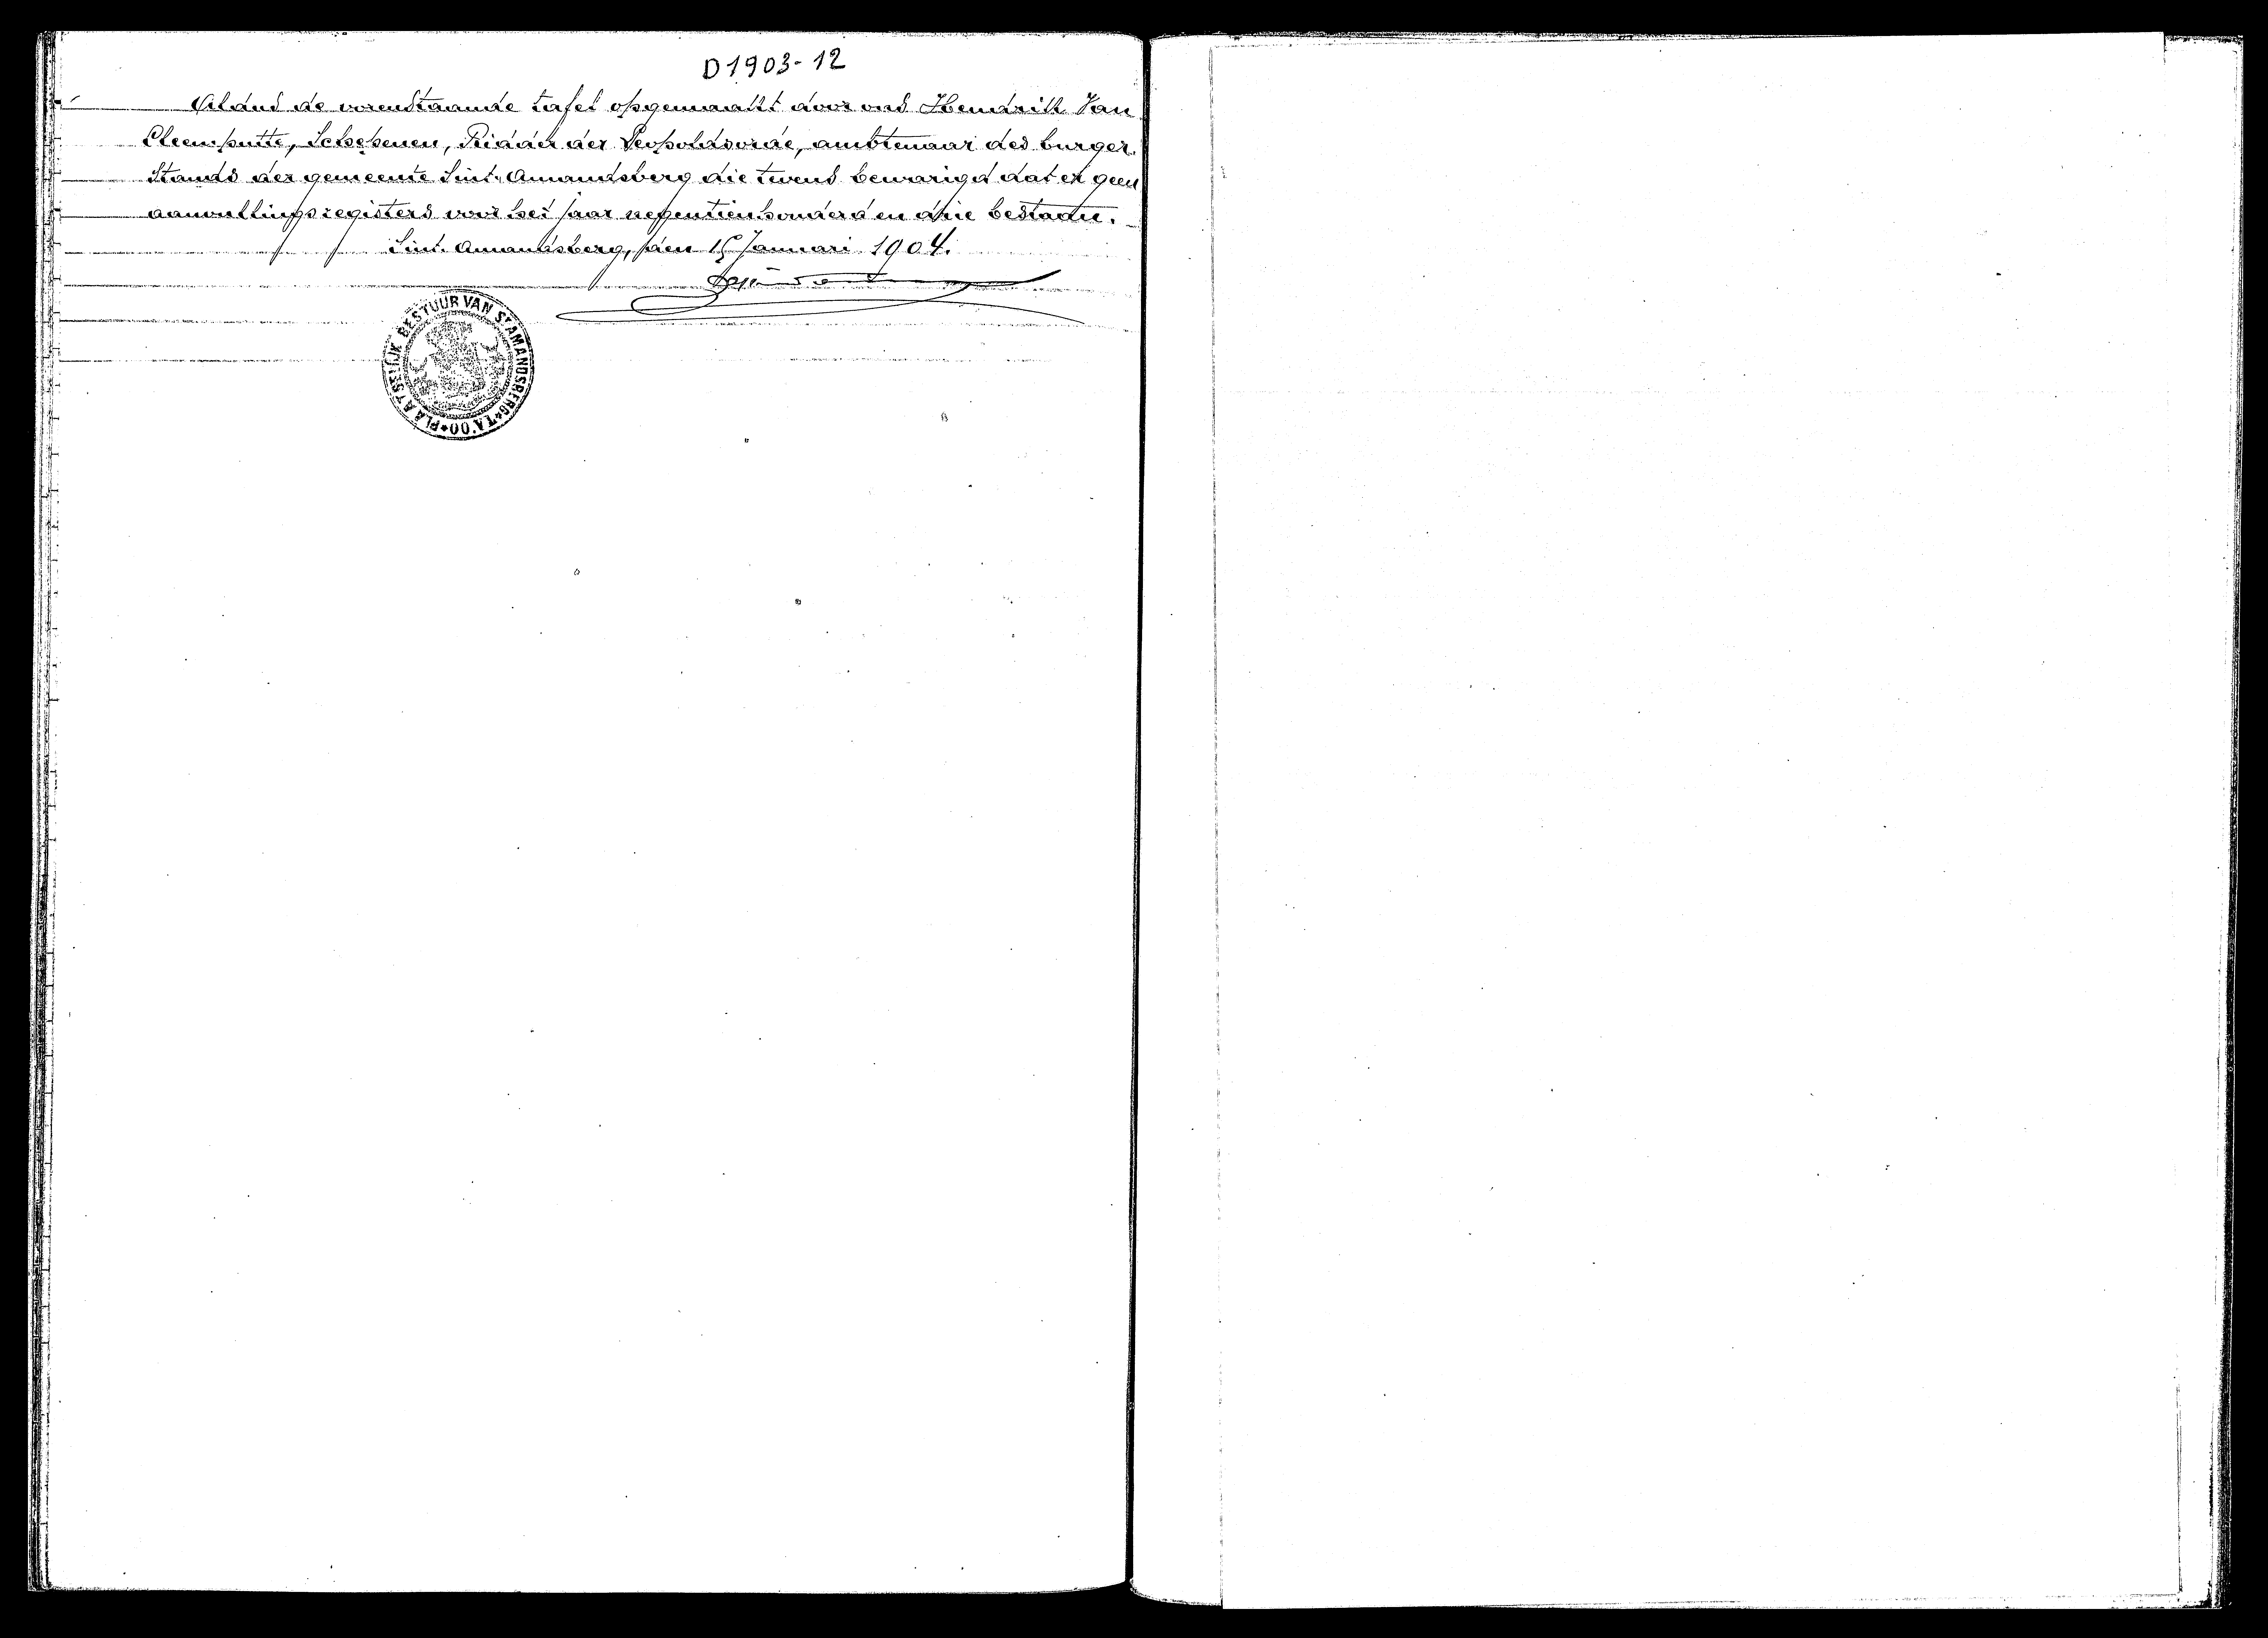 D1903-12
Aldus de vorenstaande tafel opgemaakt door ons Hendrik Van
Cleemputte, Schepenen, Ridder der Leopoldsorde, ambtenaar des burger-
stands der gemeente Sint-Amandsberg die tevens bewarigd dat er geen
aanvullingsregisters voor het jaar negentienhonderd en drie bestaan.
Sint-Amandsberg, den 15 Januari 1904.
PLAATSELIJK BESTUUR VAN ST AMANDSBERG